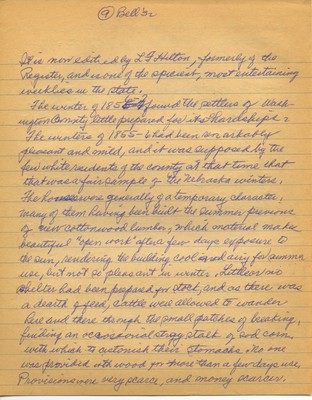 ⑨ Bell's 2
It is now edited by L F Hilton, formerly of the
Register, and is one of the spiciest, most entertaining
weeklies in the state.
The winter of 1856-7 found the settlers of Wash-
ington County little prepared for its hardships.
The winters of 1855-6 had been remarkably
pleasant and mild, and it was supposed by the
few white residents of the county at that time that
that was a fair sample of the Nebraska winters.
The houses were generally of a temporary character,
many of them having been built the summer previous
of green cottonwood lumber, which material makes
beautiful "open work" after a few days exposure to
the sun, rendering the building cool and airy for summer
use, but not so pleasant in winter. Little or no
shelter had been prepared for stock, and as there was
a dearth of feed, cattle were allowed to wander
here and there through the small patches of breaking,
finding an occasional stray stalk of sod corn
with which to astonish their stomachs. No one
was provided with wood for more than a few days use.
Provisions were very scarce, and money scarcer.